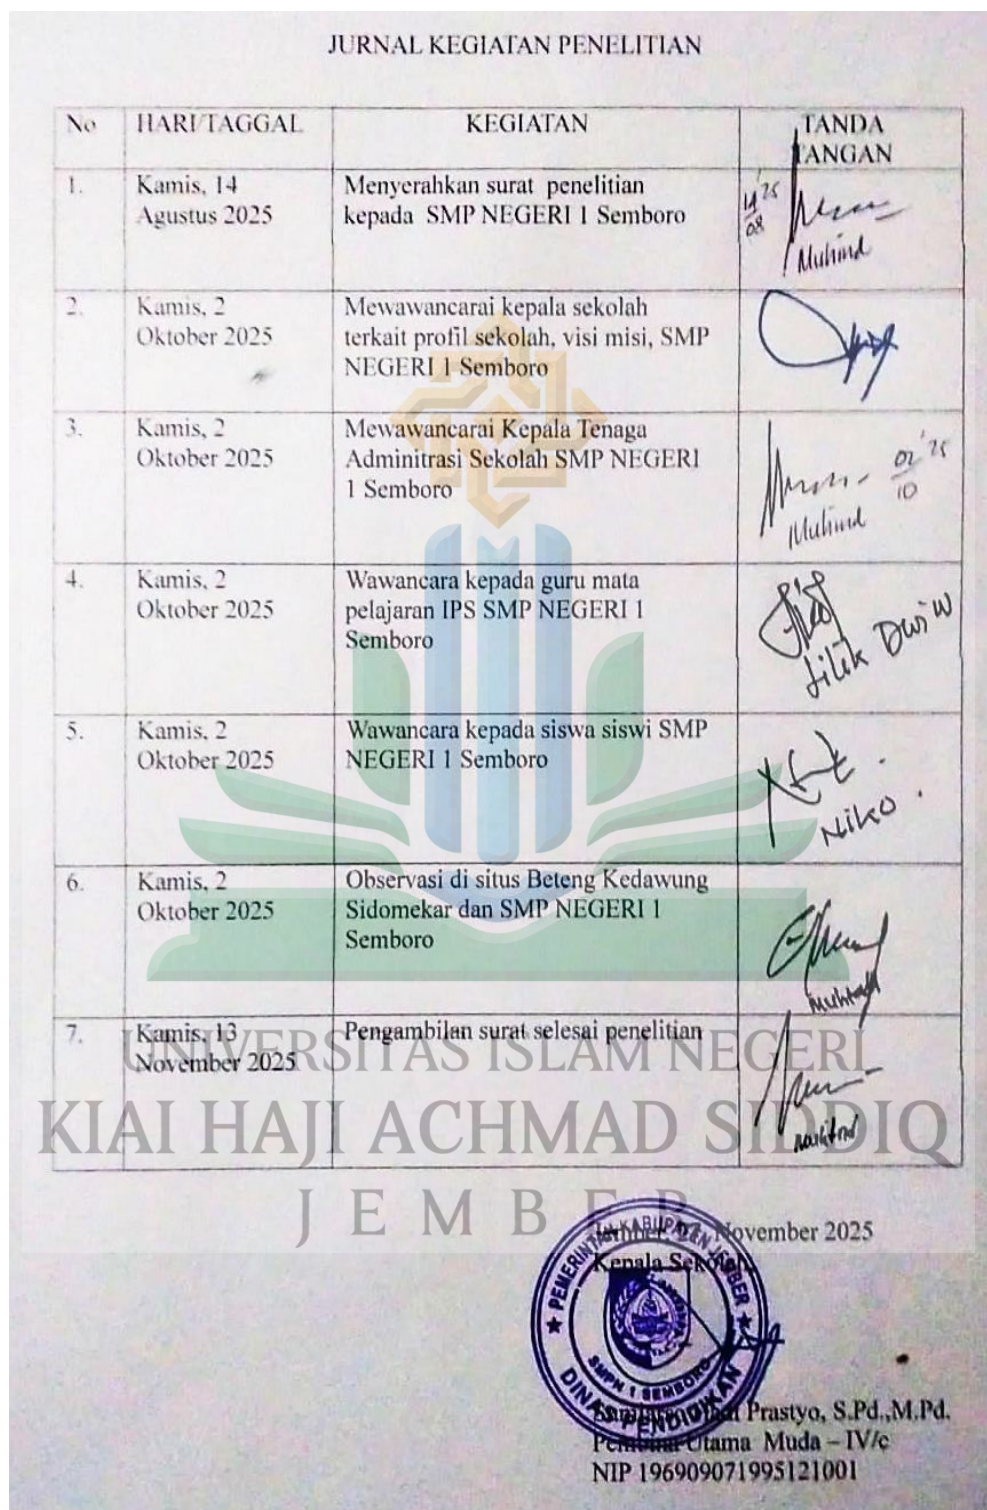 JURNAL KEGIATAN PENELITIAN
No HARI/TAGGAL KEGIATAN TANDA TANGAN
1. Kamis, 14 Agustus 2025
Menyerahkan surat penelitian
kepada SMP NEGERI 1 Semboro
14/08 '25
Muhind
2. Kamis, 2 Oktober 2025
Mewawancarai kepala sekolah
terkait profil sekolah, visi misi, SMP
NEGERI 1 Semboro
3. Kamis, 2 Oktober 2025
Mewawancarai Kepala Tenaga
Adminitrasi Sekolah SMP NEGERI
1 Semboro
02/10 '25
Muhind
4. Kamis, 2 Oktober 2025
Wawancara kepada guru mata
pelajaran IPS SMP NEGERI 1
Semboro
Lilik Dwi W
5. Kamis, 2 Oktober 2025
Wawancara kepada siswa siswi SMP
NEGERI 1 Semboro
Niko
6. Kamis, 2 Oktober 2025
Observasi di situs Beteng Kedawung
Sidomekar dan SMP NEGERI 1
Semboro
7. Kamis, 13 November 2025
Pengambilan surat selesai penelitian
UNIVERSITAS ISLAM NEGERI
KIAI HAJI ACHMAD SIDDIQ
JEMBER
November 2025
Kepala Sekolah
PEMERINTAH KABUPATEN JEMBER
SMPN 1 SEMBORO
DINAS PENDIDIKAN
Prastyo, S.Pd.,M.Pd.
Pembina Utama Muda – IV/c
NIP 196909071995121001